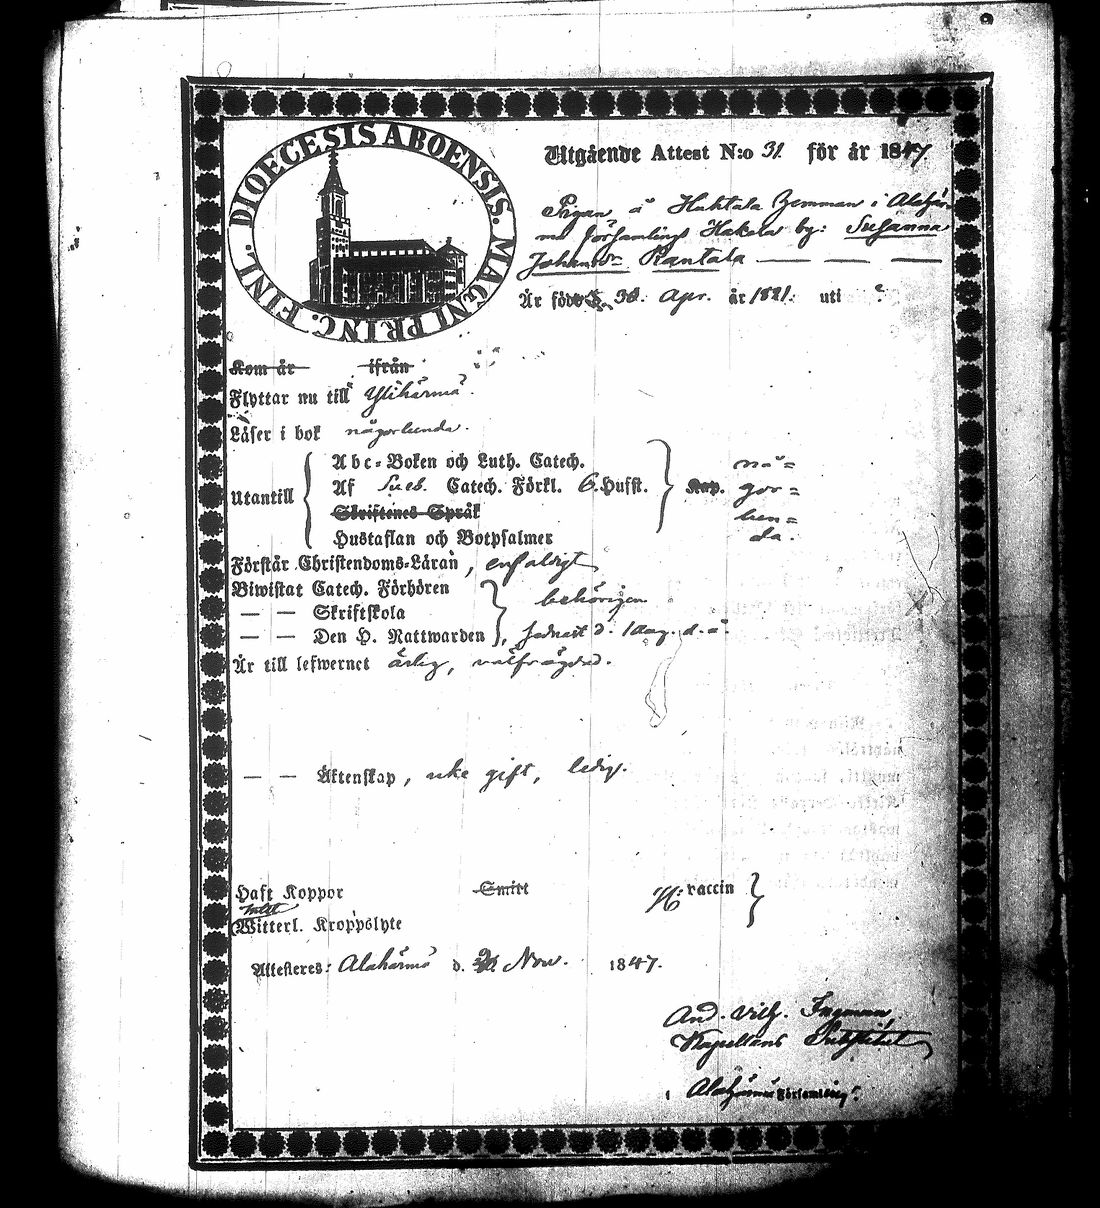 DIOECESIS ABOENSIS. MAGNI PRINC. FINL.
Utgående Attest N:o 31 för år 1847
Pigan å Huhtala Hemman i Alahär-
mä församling Hakola by: Susanna
Johansdr Rantala
Är född d. 30. Apr. år 1821. uti
Kom år ifrån
Flyttar nu till Ylihärmä.
Läser i bok någorlunda.
Utantill
Abc-Boken och Luth. Catech. nå=
Af Sveb. Catech. Förkl. 6. Husst. Kap. gor=
Skriftenes Språk lun=
Hustaflan och Botpsalmer da.
Förstår Christendoms-Läran, enfaldigt
Biwistat Catech. Förhören
— — Skriftskola behörigen
— — Den H. Nattwarden, sednast d. 1 Aug. d. å.
Är till lefwernet ärlig, välfrägdad.
— — Äktenskap, icke gift, ledig.
Haft Koppor Smitt H. vaccin
Witterl. Kroppslyte
Attesteres: Alahärmä d. Nov. 1847.
And. Vilh. Ingman
Kapellans
i Alahärmä Församling.